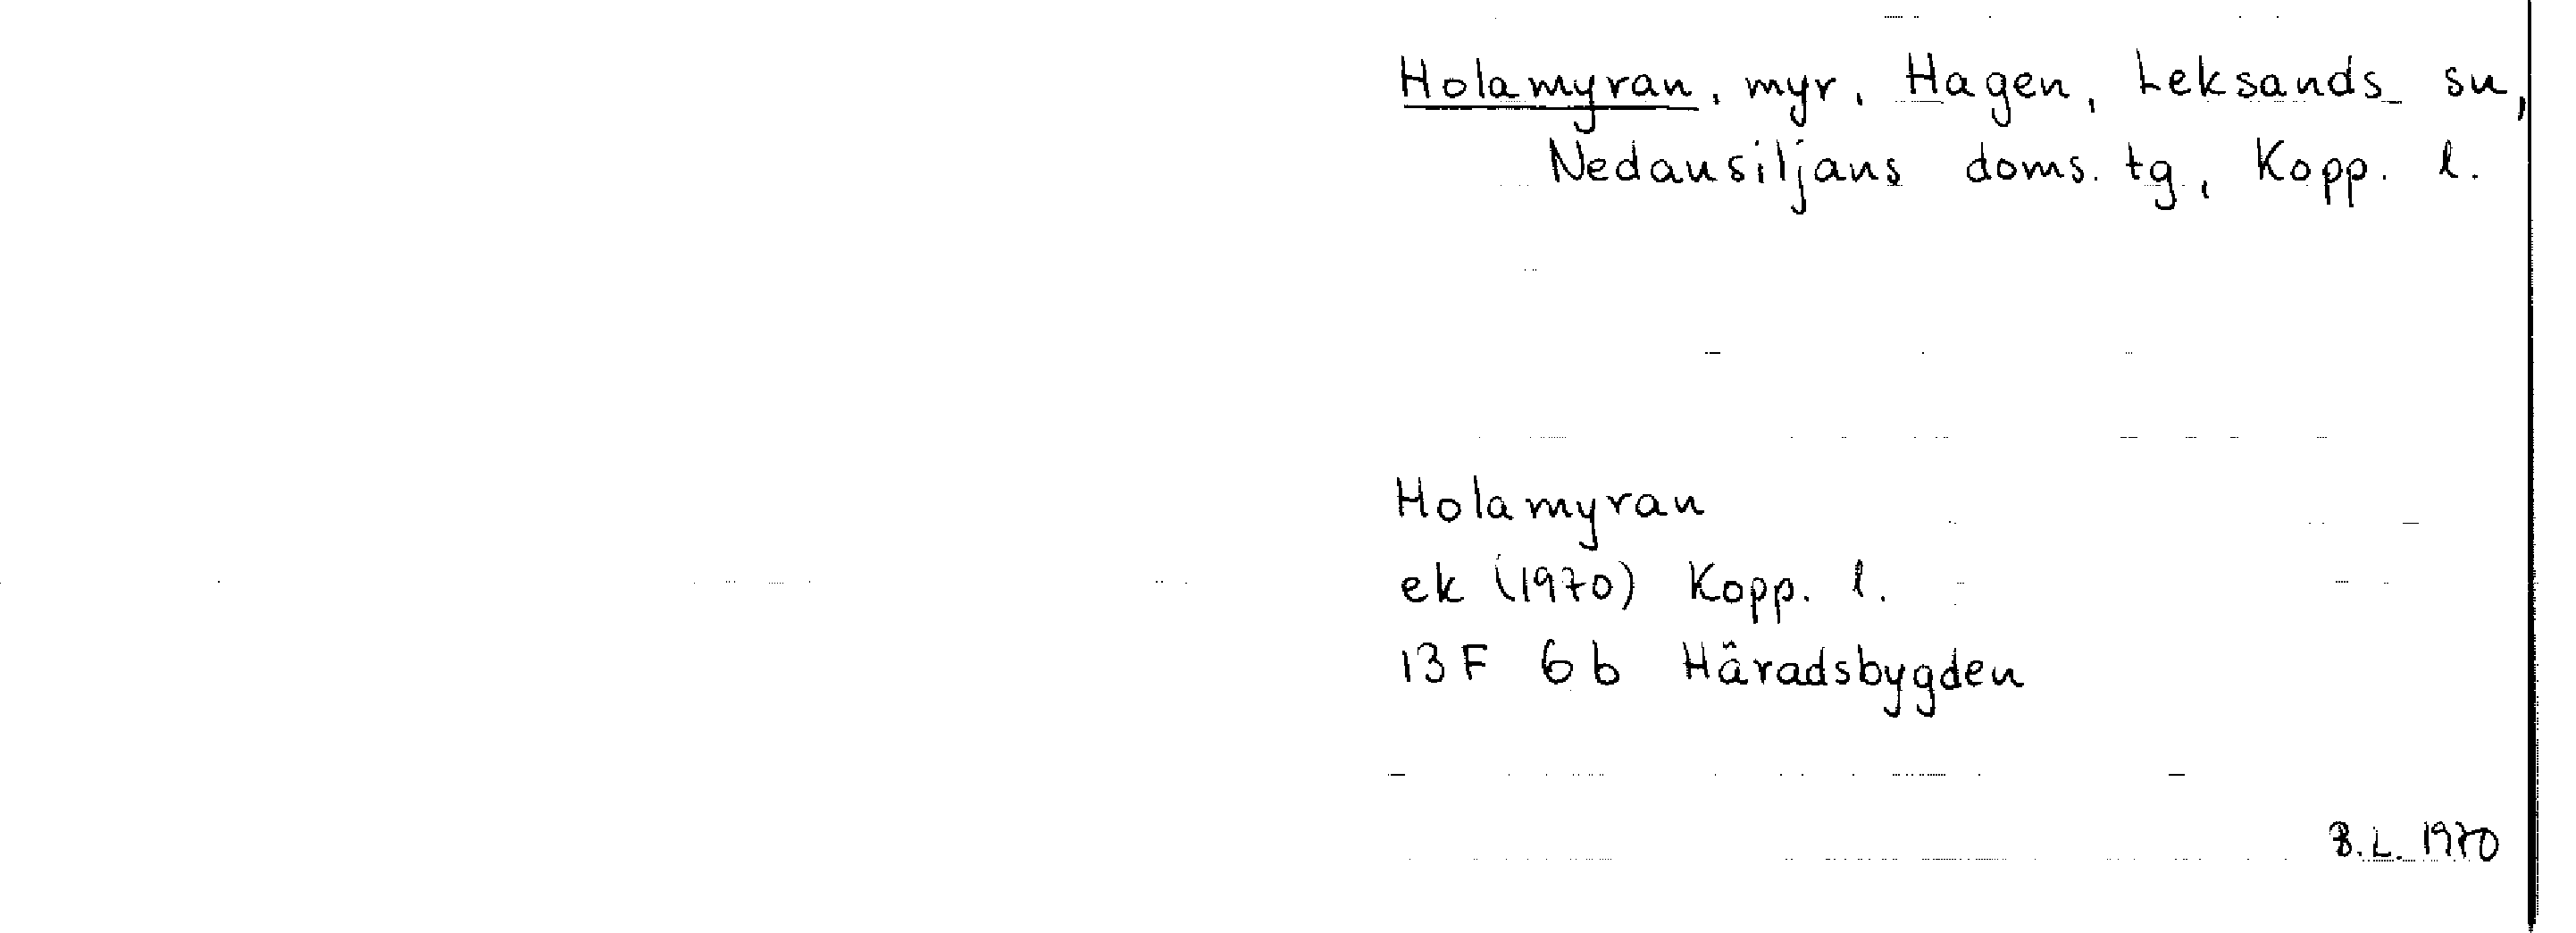 Holamyran, myr, Hagen, Leksands sn,
Nedansiljans doms. tg, Kopp. l.
Holamyran
ek (1970) Kopp. l.
13F 6b Häradsbygden
B.L. 1970